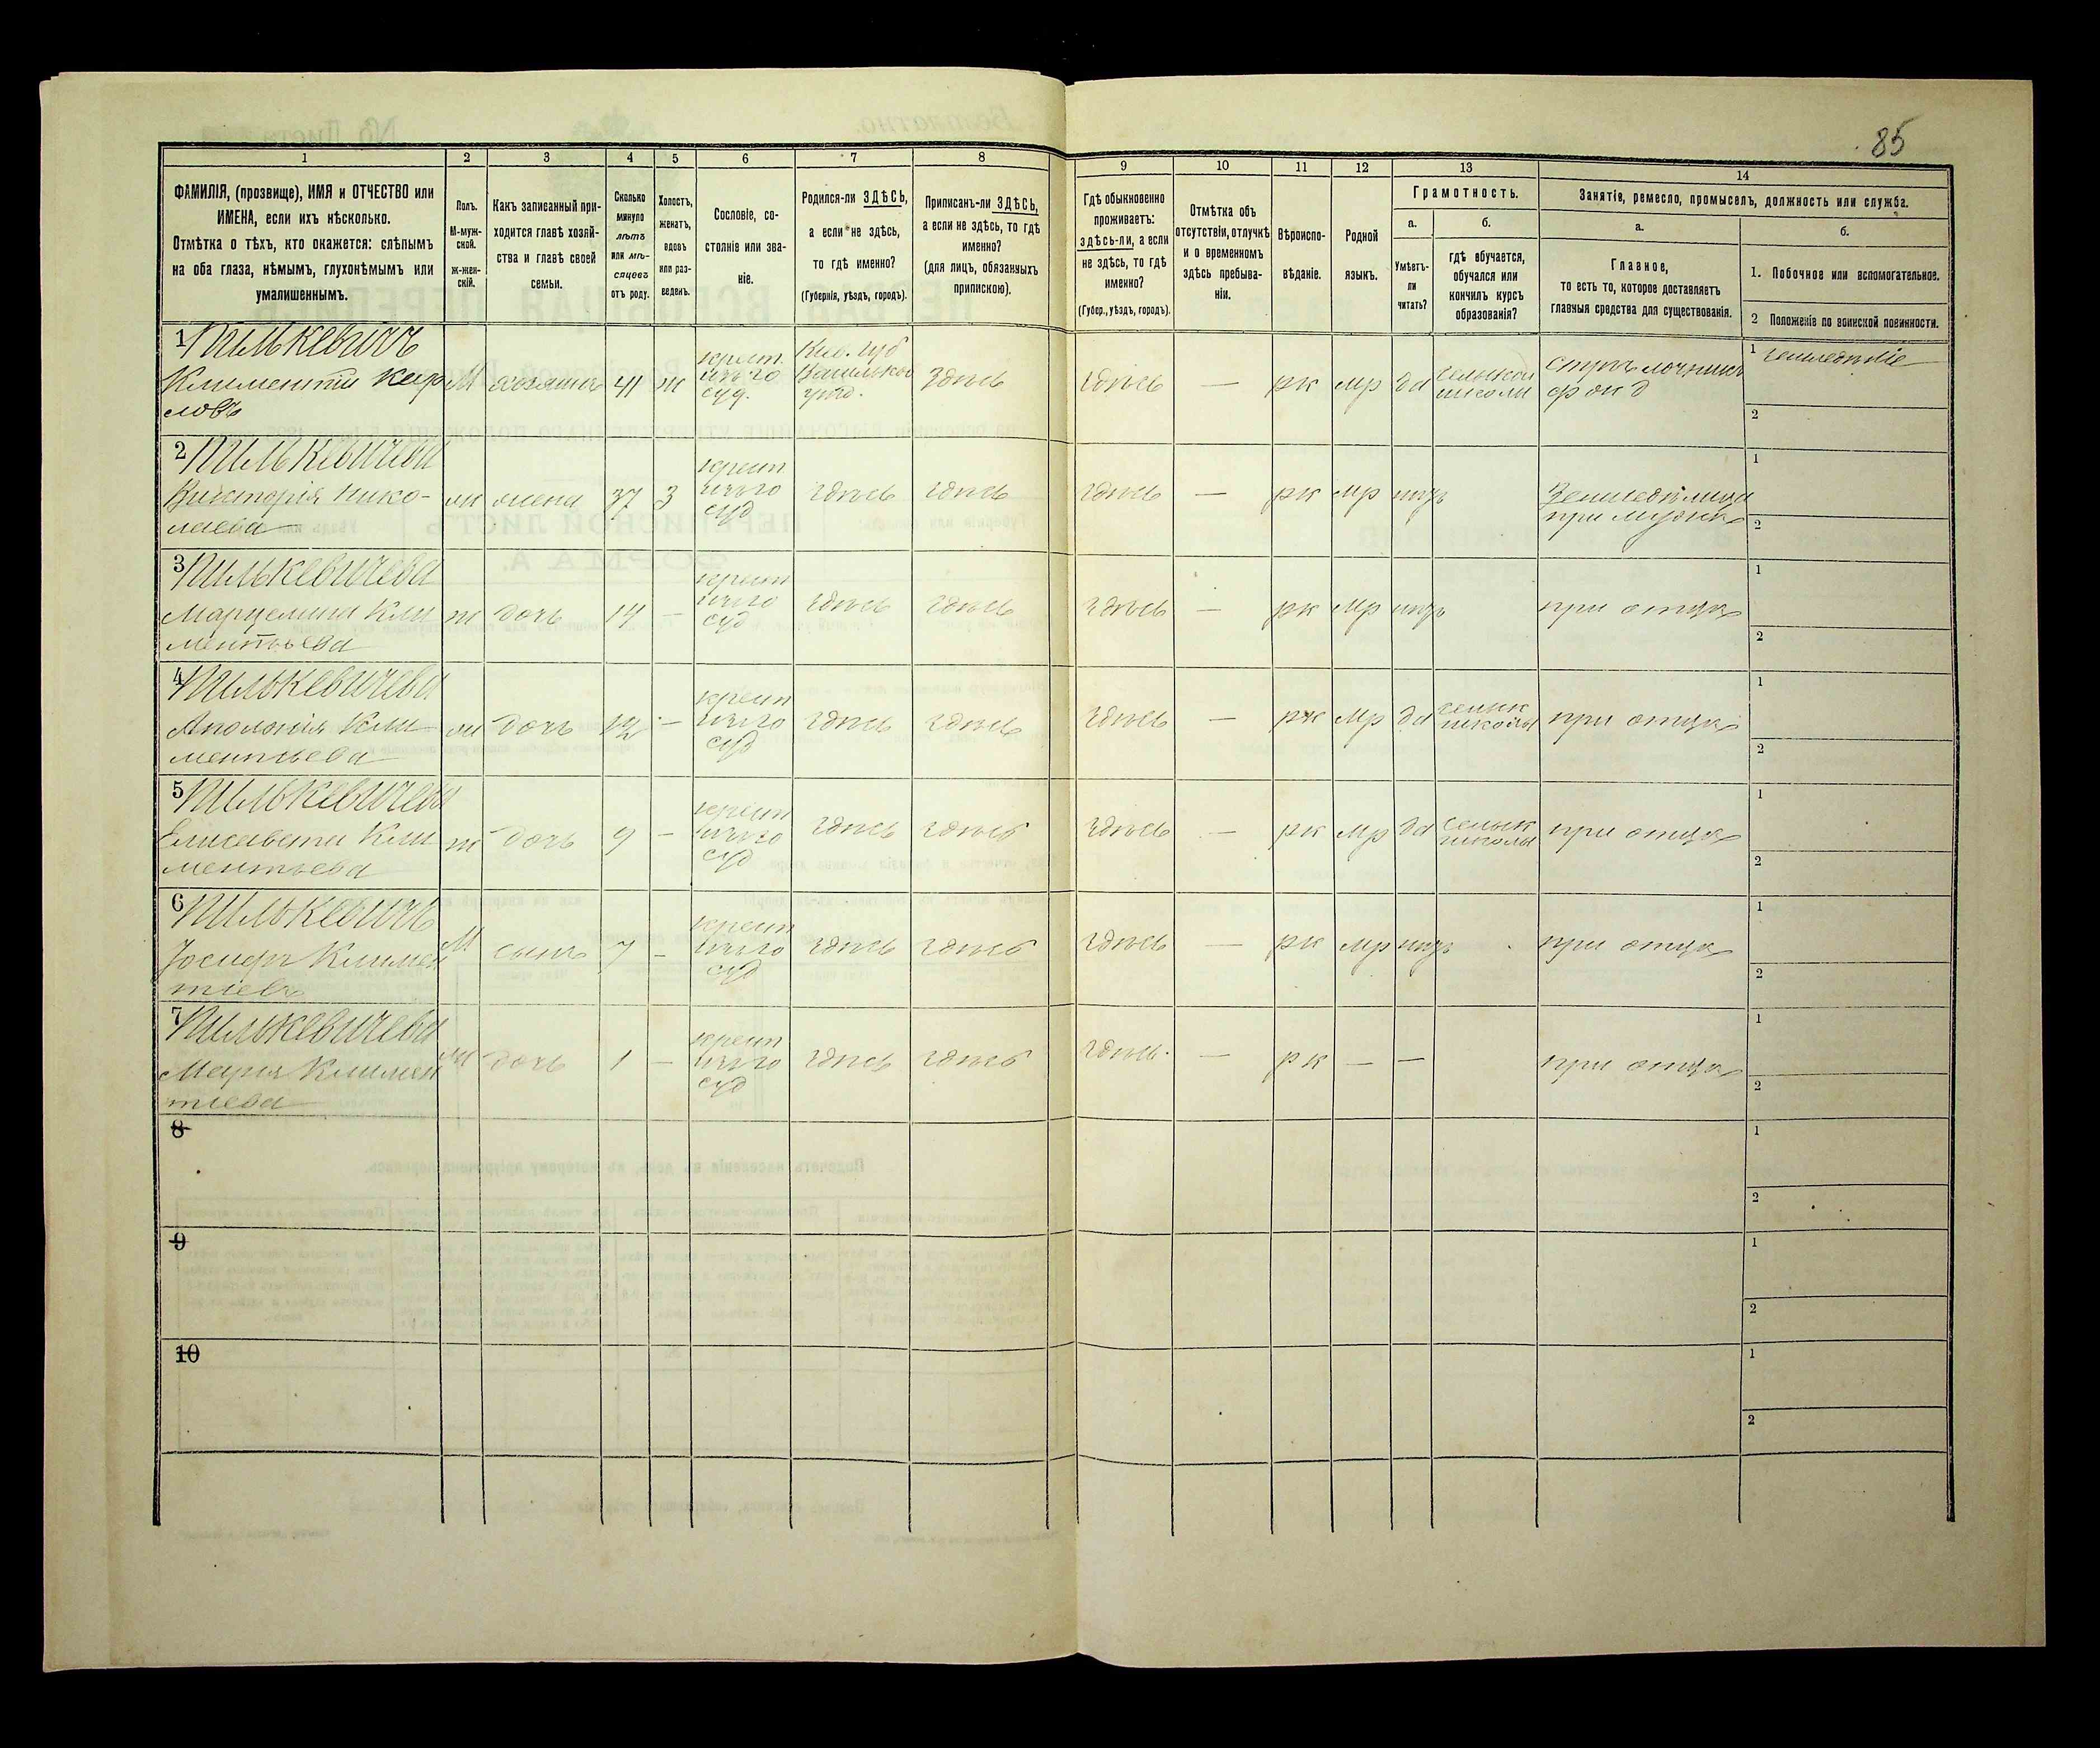 85
1 2 3 4 5 6 7 8 9 10 11 12 13 14
ФАМИЛІЯ, (прозвище), ИМЯ и ОТЧЕСТВО или
ИМЕНА, если ихъ нѣсколько.
Отмѣтка о тѣхъ, кто окажется: слѣпымъ
на оба глаза, нѣмымъ, глухонѣмымъ или
умалишеннымъ.
Полъ.
М-муж-
ской.
Ж-жен-
скій.
Какъ записанный при-
ходится главѣ хозяй-
ства и главѣ своей
семьи.
Сколько
минуло
лѣтъ
или мѣ-
сяцевъ
отъ роду.
Холостъ,
женатъ,
вдовъ
или раз-
веденъ.
Сословіе, со-
стояніе или зва-
ніе.
Родился-ли ЗДѢСЬ,
а если не здѣсь,
то гдѣ именно?
(Губернія, уѣздъ, городъ).
Приписанъ-ли ЗДѢСЬ,
а если не здѣсь, то гдѣ
именно?
(для лицъ, обязанныхъ
припискою).
Гдѣ обыкновенно
проживаетъ:
здѣсь-ли, а если
не здѣсь, то гдѣ
именно?
(Губер., уѣздъ, городъ).
Отмѣтка объ
отсутствіи, отлучкѣ
и о временномъ
здѣсь пребыва-
ніи.
Вѣроиспо-
вѣданіе.
Родной
языкъ.
Грамотность.
а.
Умѣетъ-
ли
читать?
б.
гдѣ обучается,
обучался или
кончилъ курсъ
образованія?
Занятіе, ремесло, промыселъ, должность или служба.
а.
Главное,
то есть то, которое доставляетъ
главныя средства для существованія.
б.
1. Побочное или вспомогательное.
2 Положеніе по воинской повинности.
1 Пилькевичъ
Климентій Кар
ловъ
М хозяинъ 41 ж
крест.
Кив. губ
уѣзд.
Здѣсь
здѣсь — рк мр да
школы
1 земледѣліе
2
2 Пилькевичева
Викторія Нико-
лаева
ж жена 37 3
крест
здѣсь здѣсь здѣсь — рк мр нѣтъ
при мужѣ
1
2
3 Пилькевичева
Марцелина Кли
ментьева
ж дочь 14 —
крест
здѣсь здѣсь здѣсь — рк мр нѣтъ при отцѣ
1
2
4 Пилькевичева
Аполонія Кли
ментьева
ж дочь 12 —
крест
здѣсь здѣсь здѣсь — рк мр да
сельск
школы
при отцѣ
1
2
5 Пилькевичева
Елисавета Кли
ментьева
ж дочь 9 —
крест
здѣсь здѣсь здѣсь — рк мр да
сельск
школы
при отцѣ
1
2
6 Пилькевичъ
Іосифъ Климен
тіевъ
М сынъ 7 —
крест
здѣсь здѣсь здѣсь — рк мр нѣтъ при отцѣ
1
2
7 Пилькевичева
Марія Климен
тіева
ж дочь 1 —
крест
здѣсь здѣсь здѣсь — рк — — при отцѣ
1
2
8
1
2
9
1
2
10
1
2